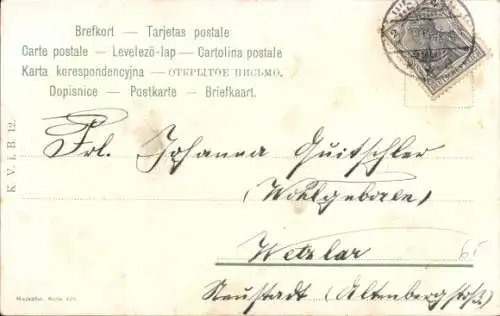 Brefkort — Tarjetas postale
Carte postale — Levelező-lap — Cartolina postale
Karta korespondencyjna — ОТКРЫТОЕ ПИСЬМО.
Dopisnice — Postkarte — Briefkaart.
K. V. i. B. 12.
Frl. Johanna Quitschler
(Wohlgeboren)
Wetzlar
Neustadt (Altenbergstraß)